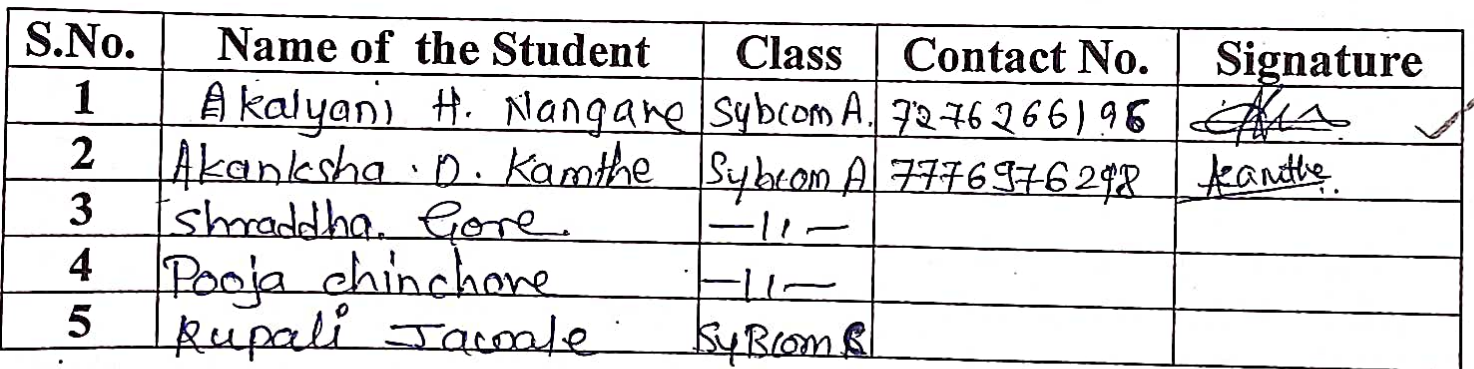 S.No. Name of the Student Class Contact No. Signature
1 Akalyani H. Nangare Sybcom A. 7276266196
2 Akanksha . D. Kamthe Sybcom A 7776976298 Kamthe
3 Shraddha. Gore. —11—
4 Pooja chinchore —11—
5 Rupali SyBcom